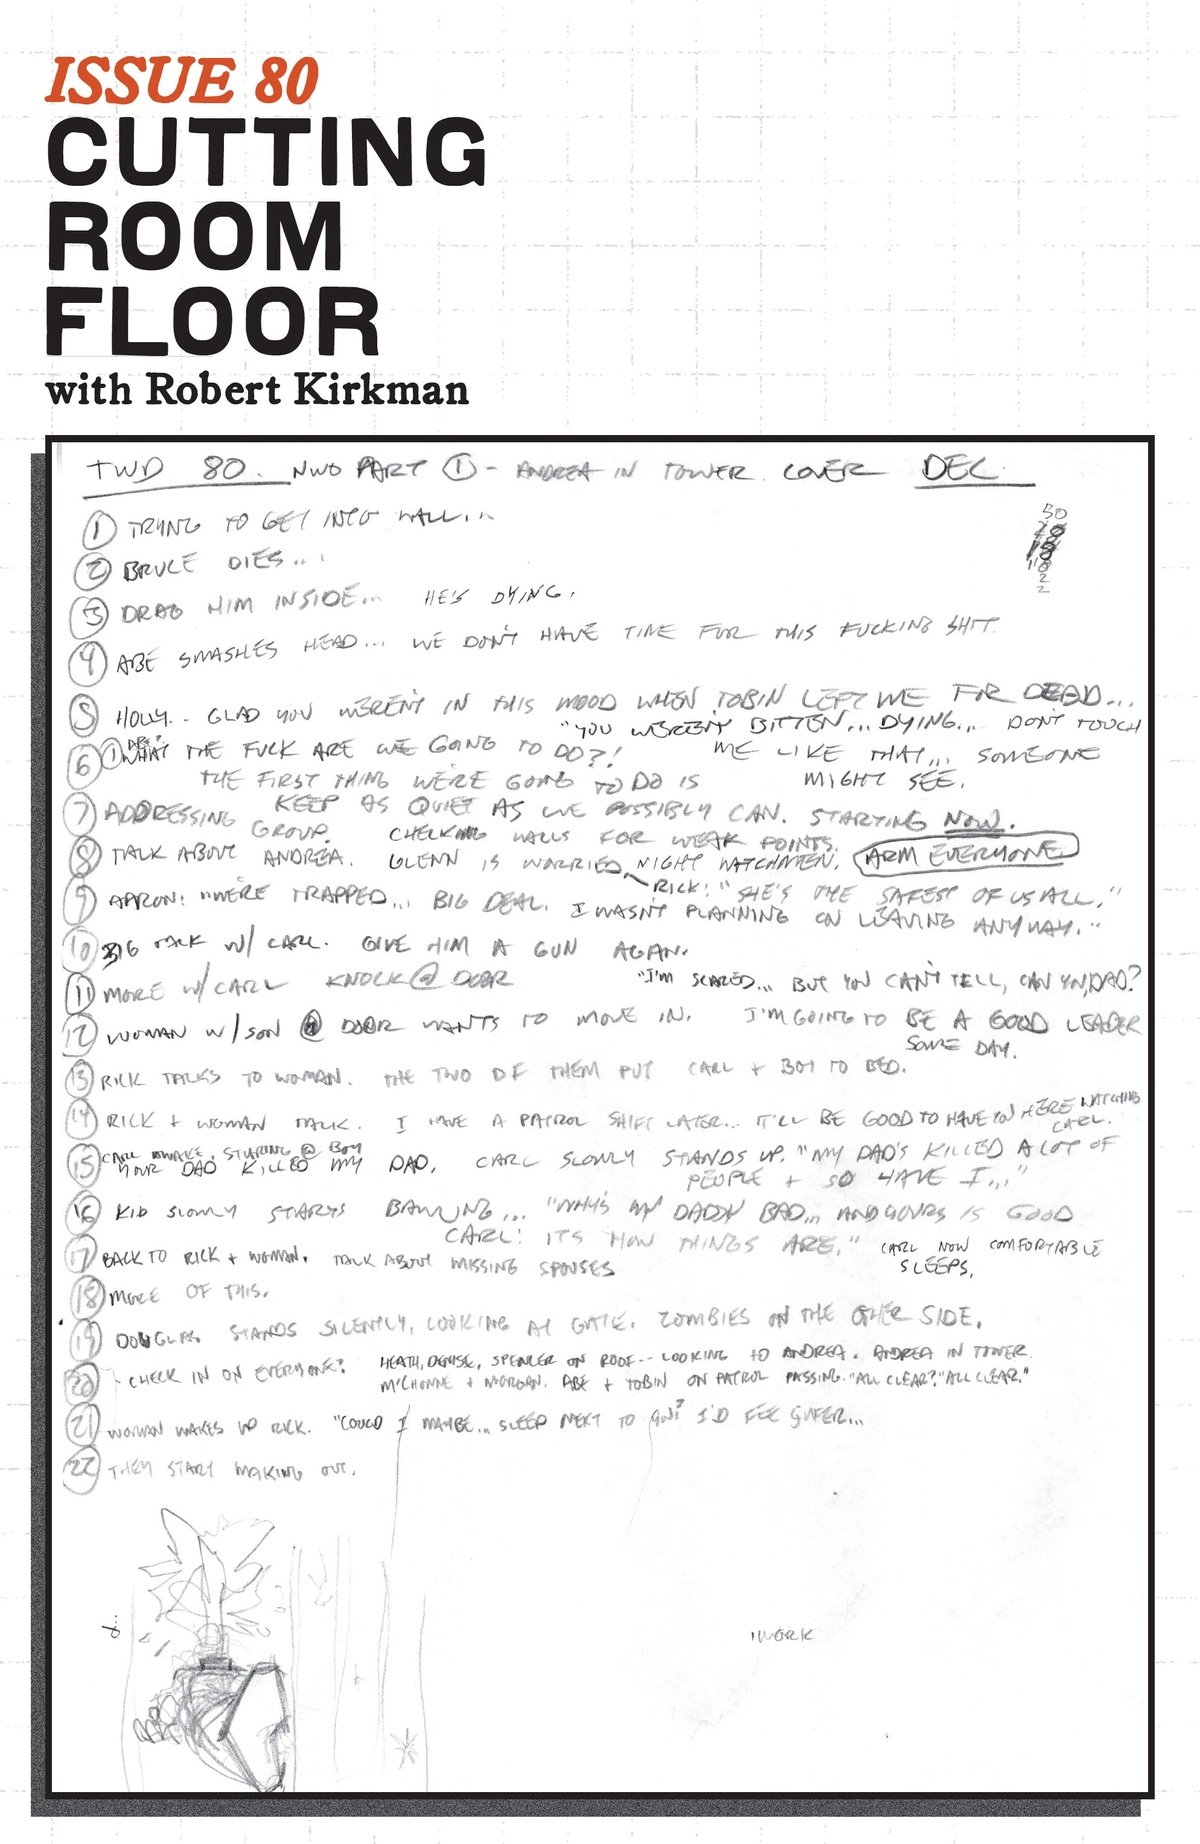 ISSUE 80
CUTTING
ROOM
FLOOR
with Robert Kirkman
TWD 80. NWO PART ① - ANDREA IN TOWER COVER DEC.
① TRYING TO GET INTO WALL...
50
② BRUCE DIES...
③ DRAG HIM INSIDE... HE'S DYING.
2
2
④ ABE SMASHES HEAD... WE DON'T HAVE TIME FOR THIS FUCKING SHIT.
⑤ HOLLY... GLAD YOU WEREN'T IN THIS MOOD WHEN TOBIN LEFT ME FOR DEAD...
"YOU WEREN'T BITTEN... DYING... DON'T TOUCH
ME LIKE THAT... SOMEONE
MIGHT SEE.
ABE?
⑥ ① WHAT THE FUCK ARE WE GOING TO DO?!
THE FIRST THING WE'RE GOING TO DO IS
KEEP AS QUIET AS WE POSSIBLY CAN. STARTING NOW.
⑦ ADDRESSING GROUP. CHECKING WALLS FOR WEAK POINTS.
⑧ TALK ABOUT ANDREA. GLENN IS WORRIED, NIGHT WATCHMEN. ARM EVERYONE
RICK: "SHE'S THE SAFEST OF US ALL."
⑨ AARON: "WE'RE TRAPPED... BIG DEAL. I WASN'T PLANNING ON LEAVING ANYWAY."
⑩ BIG TALK W/ CARL. GIVE HIM A GUN AGAIN.
⑪ MORE W/ CARL KNOCK @ DOOR "I'M SCARED... BUT YOU CAN'T TELL, CAN YOU, DAD?
⑫ WOMAN W/ SON @ DOOR WANTS TO MOVE IN. I'M GOING TO BE A GOOD LEADER
SOME DAY.
⑬ RICK TALKS TO WOMAN. THE TWO OF THEM PUT CARL + BOY TO BED.
⑭ RICK + WOMAN TALK. I HAVE A PATROL SHIFT LATER... IT'LL BE GOOD TO HAVE YOU HERE WATCHING
CARL.
CARL AWAKE, STARING @ BOY
⑮ YOUR DAD KILLED MY DAD. CARL SLOWLY STANDS UP. "MY DAD'S KILLED A LOT OF
PEOPLE + SO HAVE I..."
⑯ KID SLOWLY STARTS BAWLING... "WHY'S MY DADDY BAD... AND YOURS IS GOOD
CARL: ITS HOW THINGS ARE." CARL NOW COMFORTABLE
SLEEPS.
⑰ BACK TO RICK + WOMAN. TALK ABOUT MISSING SPOUSES
⑱ MORE OF THIS.
⑲ DOUGLAS STANDS SILENTLY, LOOKING AT GATE. ZOMBIES ON THE OTHER SIDE.
⑳ - CHECK IN ON EVERYONE? HEATH, DENISE, SPENCER ON ROOF -- LOOKING TO ANDREA. ANDREA IN TOWER.
MICHONNE + MORGAN. ABE + TOBIN ON PATROL PASSING. "ALL CLEAR?" "ALL CLEAR."
㉑ WOMAN WAKES UP RICK. "COULD I MAYBE... SLEEP NEXT TO YOU? I'D FEEL SAFER...
㉒ THEY START MAKING OUT.